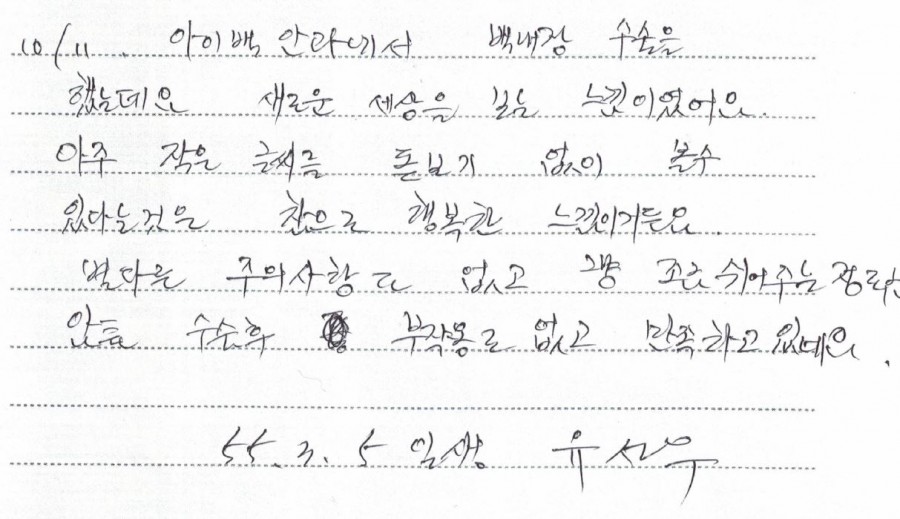 10/11 아이백 안과에서 백내장 수술을
했는데요 새로운 세상을 보는 느낌이었어요.
아주 작은 글씨를 돋보기 없이 볼수
있다는것은 참으로 행복한 느낌이거든요.
별다른 주의사항도 없고 그냥 조금 쉬어주는 정도란
수술후 부작용도 없고 만족하고 있네요.
55.3.5일생 유선우